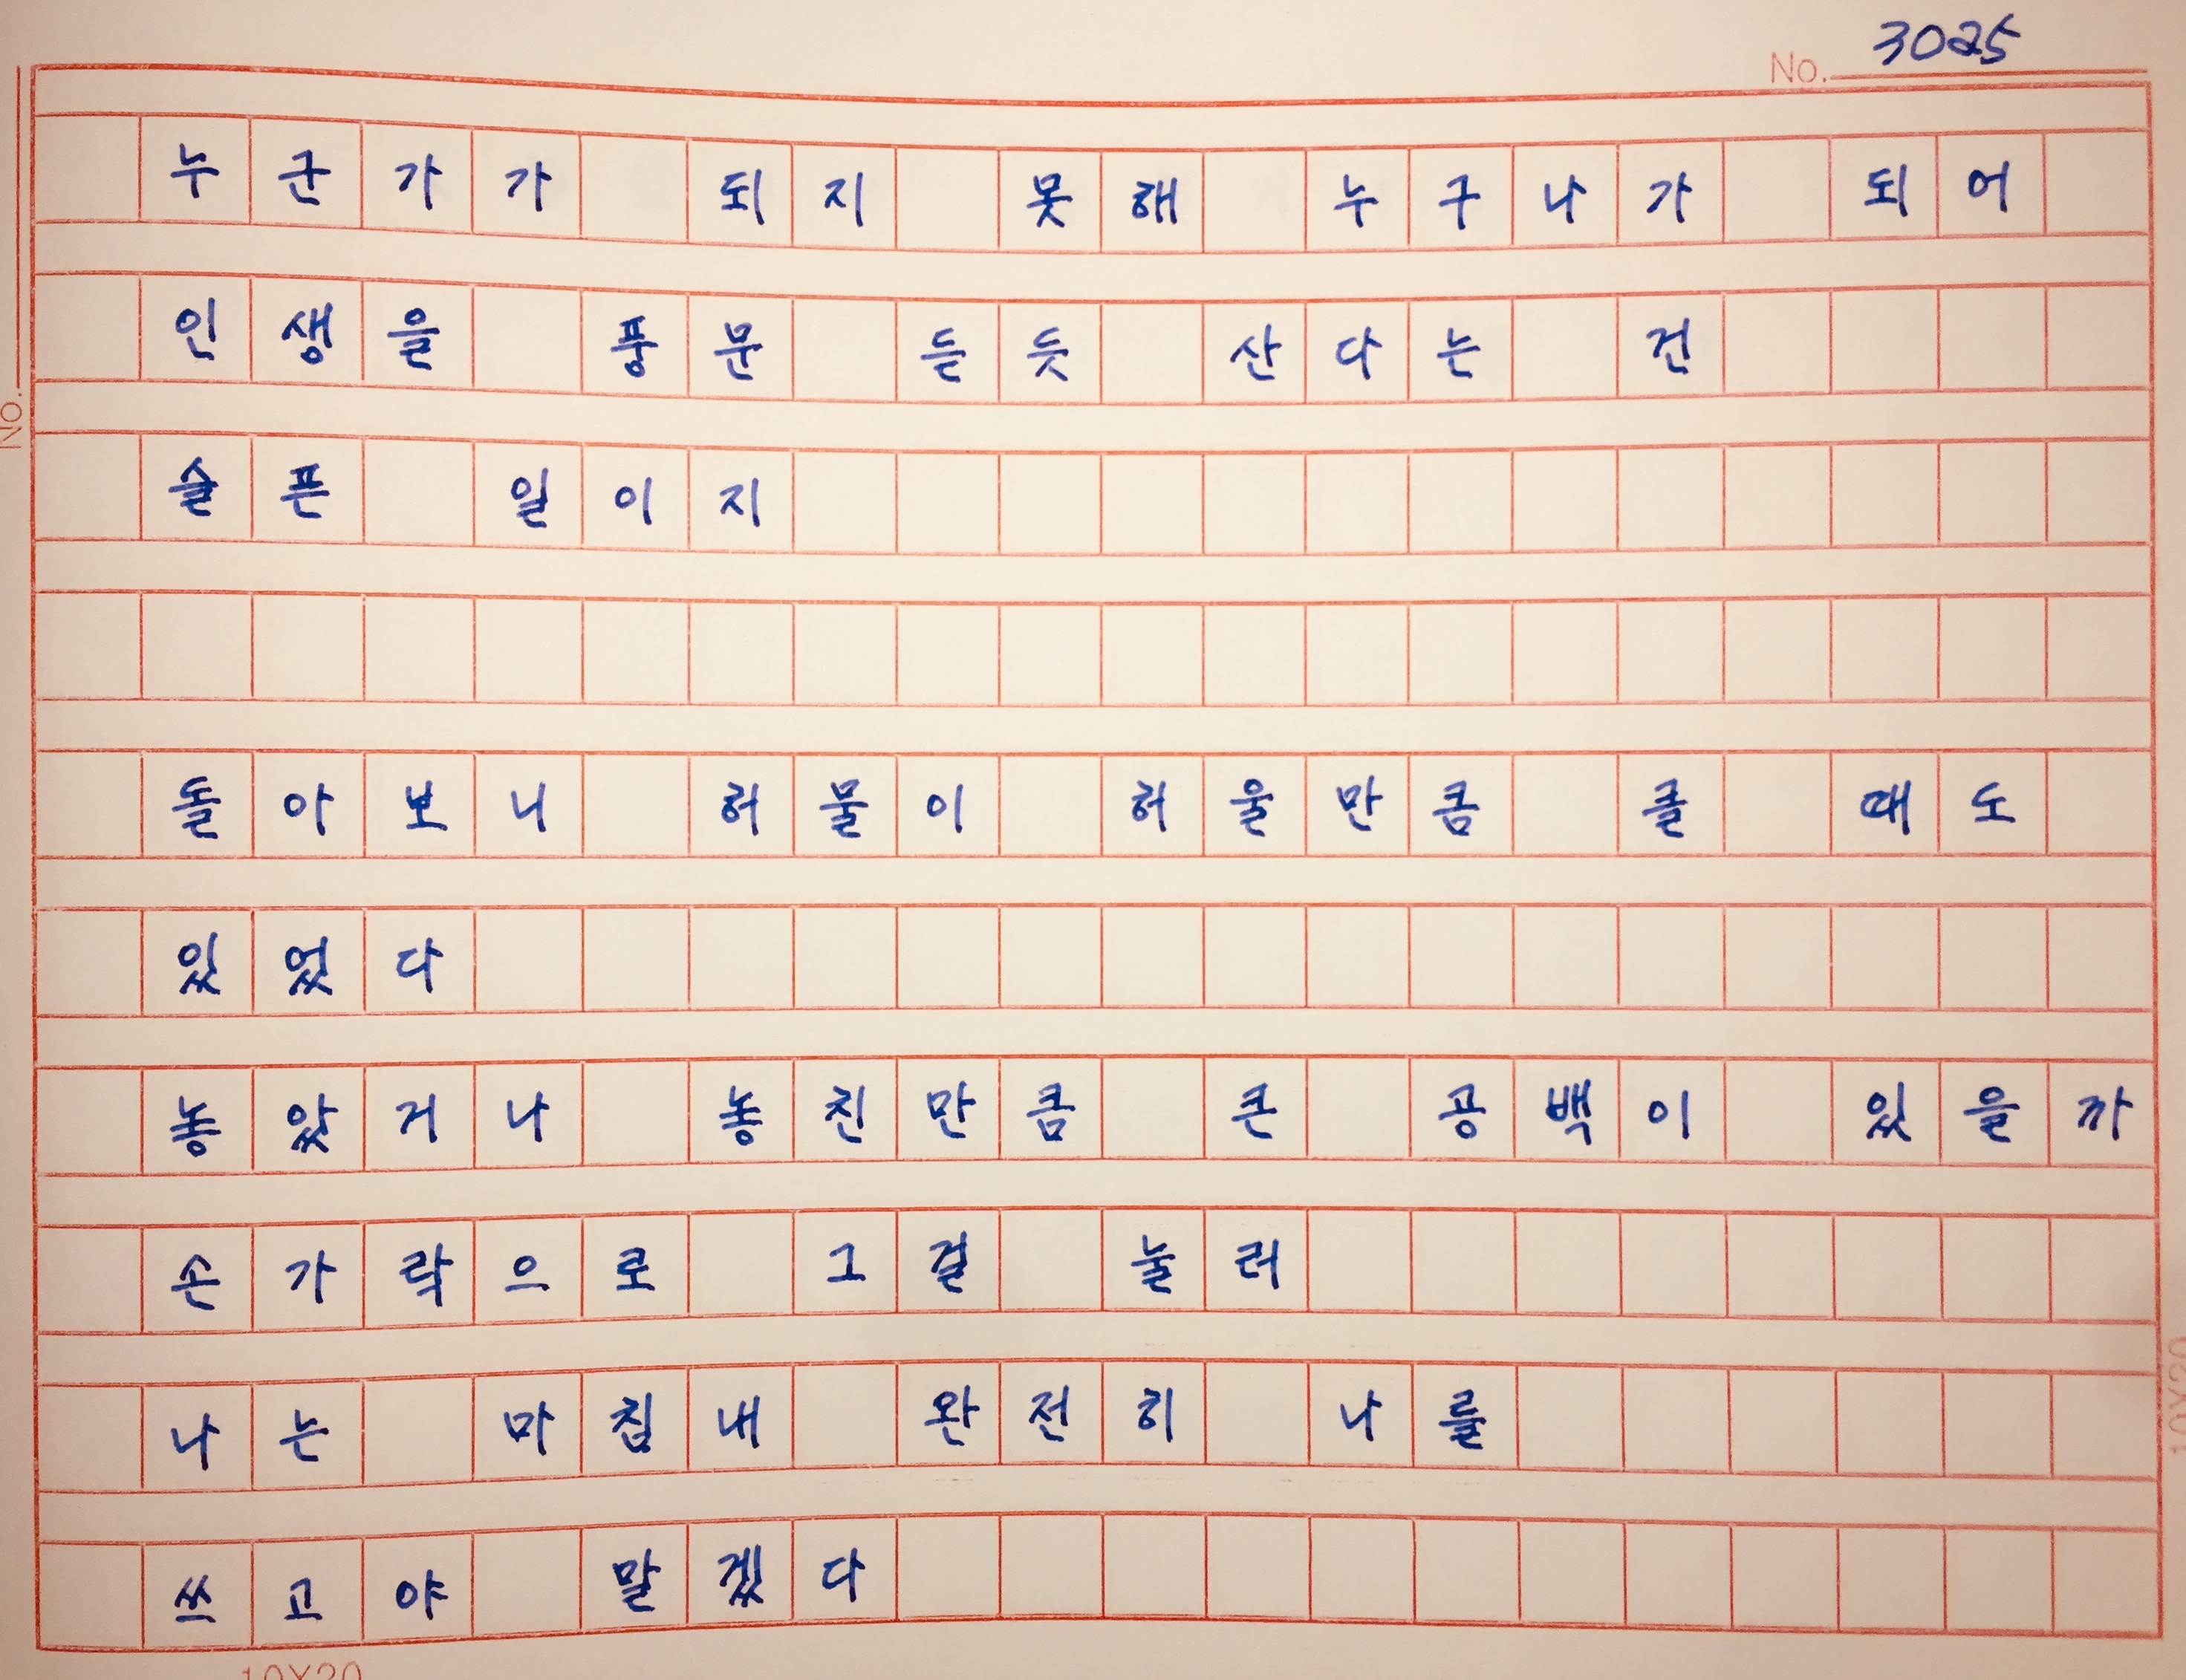 No. 3025
누군가가 되지 못해 누구나가 되어
인생을 풍문 듣듯 산다는 건
슬픈 일이지
돌아보니 허물이 허울만큼 클 때도
있었다
놓았거나 놓친만큼 큰 공백이 있을까
손가락으로 그걸 눌러
나는 마침내 완전히 나를
쓰고야 말겠다
No.
10X20
10X20